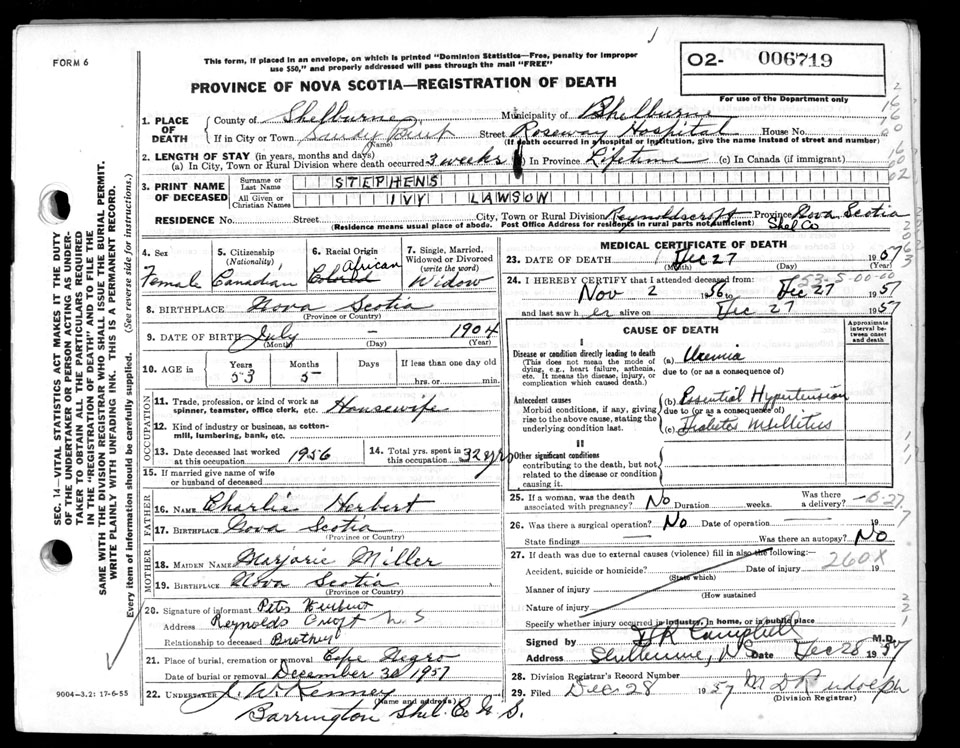 FORM 6
This form, if placed in an envelope, on which is printed "Dominion Statistics—Free, penalty for improper
use $50," and properly addressed will pass through the mail "FREE"
PROVINCE OF NOVA SCOTIA—REGISTRATION OF DEATH
O2- 006719
For use of the Department only
SEC. 14—VITAL STATISTICS ACT MAKES IT THE DUTY
OF THE UNDERTAKER OR PERSON ACTING AS UNDER-
TAKER TO OBTAIN ALL THE PARTICULARS REQUIRED
IN THE "REGISTRATION OF DEATH" AND TO FILE THE
SAME WITH THE DIVISION REGISTRAR WHO SHALL ISSUE THE BURIAL PERMIT.
WRITE PLAINLY WITH UNFADING INK. THIS IS A PERMANENT RECORD.
Every item of information should be carefully supplied. (See reverse side for instructions.)
1. PLACE OF DEATH
County of Shelburne Municipality of Shelburne
If in City or Town Sandy Point Street Roseway Hospital House No.
(Name) (If death occurred in a hospital or institution, give the name instead of street and number)
2. LENGTH OF STAY (in years, months and days)
(a) In City, Town or Rural Division where death occurred 3 weeks (b) In Province Lifetime (c) In Canada (if immigrant)
3. PRINT NAME OF DECEASED
Surname or Last Name STEPHENS
All Given or Christian Names IVY LAWSON
RESIDENCE No. Street City, Town or Rural Division Reynoldscroft Province Nova Scotia
(Residence means usual place of abode. Post Office Address for residents in rural parts not sufficient) Shel Co
4. Sex Female
5. Citizenship (Nationality) Canadian
6. Racial Origin Colored African
7. Single, Married, Widowed or Divorced (write the word) Widow
8. BIRTHPLACE Nova Scotia
(Province or Country)
9. DATE OF BIRTH July — 1904
(Month) (Day) (Year)
10. AGE in Years 53 Months 5 Days If less than one day old
hrs. or min.
OCCUPATION
11. Trade, profession, or kind of work as
spinner, teamster, office clerk, etc. Housewife
12. Kind of industry or business, as cotton-
mill, lumbering, bank, etc.
13. Date deceased last worked
at this occupation 1956
14. Total yrs. spent in
this occupation 32 yrs
15. If married give name of wife
or husband of deceased
FATHER
16. NAME Charlie Herbert
17. BIRTHPLACE Nova Scotia
(Province or Country)
MOTHER
18. MAIDEN NAME Marjorie Miller
19. BIRTHPLACE Nova Scotia
(Province or Country)
20. Signature of informant Peter Herbert
Address Reynolds Croft N S
Relationship to deceased Brother
21. Place of burial, cremation or removal Cape Negro
Date of burial or removal December 30 1957
22. UNDERTAKER J. W. Kenney
(Name and address)
Barrington Shel. Co N. S.
9004-3.2: 17-6-55
MEDICAL CERTIFICATE OF DEATH
23. DATE OF DEATH Dec 27 1957
(Month) (Day) (Year)
24. I HEREBY CERTIFY that I attended deceased from:
Nov 2 1956 to Dec 27 1957
and last saw her alive on Dec 27 1957
CAUSE OF DEATH
Approximate interval between onset and death
I
Disease or condition directly leading to death
(This does not mean the mode of
dying, e.g., heart failure, asthenia,
etc. It means the disease, injury, or
complication which caused death.)
(a) Uremia
due to (or as a consequence of)
Antecedent causes
Morbid conditions, if any, giving
rise to the above cause, stating the
underlying condition last.
(b) Essential Hypertension
due to (or as a consequence of)
(c) Diabetes Mellitus
II
Other significant conditions
contributing to the death, but not
related to the disease or condition
causing it.
25. If a woman, was the death
associated with pregnancy? No Duration weeks. Was there
a delivery?
26. Was there a surgical operation? No Date of operation — 19
State findings — Was there an autopsy? No
27. If death was due to external causes (violence) fill in also the following:—
Accident, suicide or homicide? Date of injury 19
(State which)
260X
Manner of injury
(How sustained)
Nature of injury
Specify whether injury occurred in industry, in home, or in public place
Signed by H R Campbell M.D.
Address Shelburne, N.S. Date Dec 28 1957
28. Division Registrar's Record Number
29. Filed Dec. 28 1957 M D Rudolph
(Division Registrar)